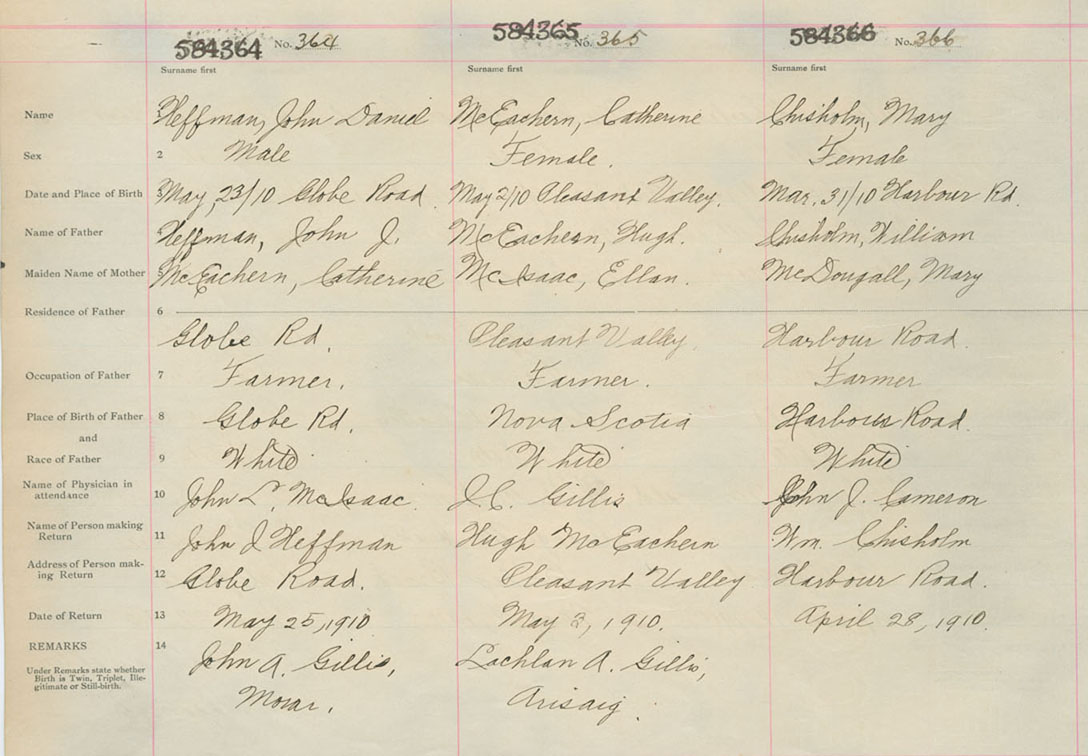 584364 No. 364 584365 No. 365 584366 No. 366
Surname first Surname first Surname first
Name Heffman, John Daniel McEachern, Catherine Chisholm, Mary
Sex 2 Male Female. Female
Date and Place of Birth 3 May, 23/10 Globe Road. May 2/10 Pleasant Valley. Mar. 31/10 Harbour Rd.
Name of Father Heffman, John J. McEachern, Hugh. Chisholm, William
Maiden Name of Mother McEachern, Catherine McIsaac, Ellan. McDougall, Mary
Residence of Father 6
Globe Rd. Pleasant Valley. Harbour Road.
Occupation of Father 7 Farmer. Farmer. Farmer
Place of Birth of Father 8 Globe Rd. Nova Scotia Harbour Road.
and
Race of Father 9 White White White
Name of Physician in
attendance 10 John L. McIsaac. J.C. Gillis John J. Cameron
Name of Person making
Return 11 John J Heffman Hugh McEachern Wm. Chisholm
Address of Person mak-
ing Return 12 Globe Road. Pleasant Valley Harbour Road.
Date of Return 13 May 25, 1910 May 3, 1910. April 28, 1910.
REMARKS 14 John A. Gillis, Lachlan A. Gillis,
Under Remarks state whether
Birth is Twin, Triplet, Ille-
gitimate or Still-birth.
Morar. Arisaig.